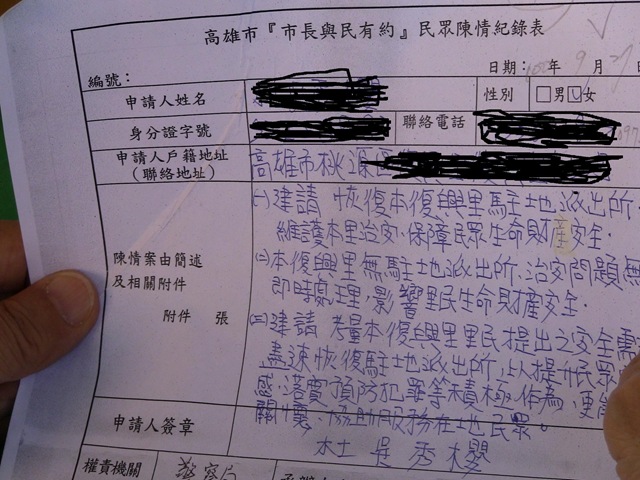 高雄市『市長與民有約』民眾陳情紀錄表
日期： 年 9 月 日
編號：
申請人姓名 性別 □男□女
身分證字號 聯絡電話
申請人戶籍地址 高雄市桃源區
(聯絡地址)
(一)建請 恢復本復興里駐地派出所，
維護本里治安、保障民眾生命財產安全。
陳情案由簡述 (二)本復興里無駐地派出所，治安問題無
及相關附件 即時處理，影響里民生命財產安全。
附件 張 (三)建請 考量本復興里里民提出之安全需
盡速恢復駐地派出所，以提升民眾
感，落實預防犯罪等積極作為，更能
關懷、協助服務在地民眾。
申請人簽章 吳秀櫻
權責機關 警察局